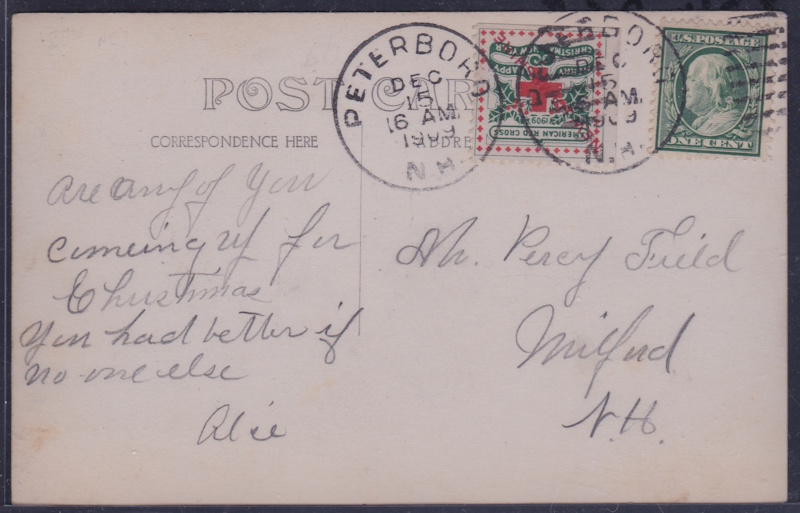 POST CARD
CORRESPONDENCE HERE
PETERBORO
DEC
15
6 AM
1909
N.H.
PETERBORO
DEC
15
6 AM
1909
N.H.
MERRY CHRISTMAS
HAPPY NEW YEAR
1909
AMERICAN RED CROSS
U.S. POSTAGE
ONE CENT
Are any of You
comeing up for
Christmas
You had better if
no one else
Mr. Percy Field
Milford
N.H.